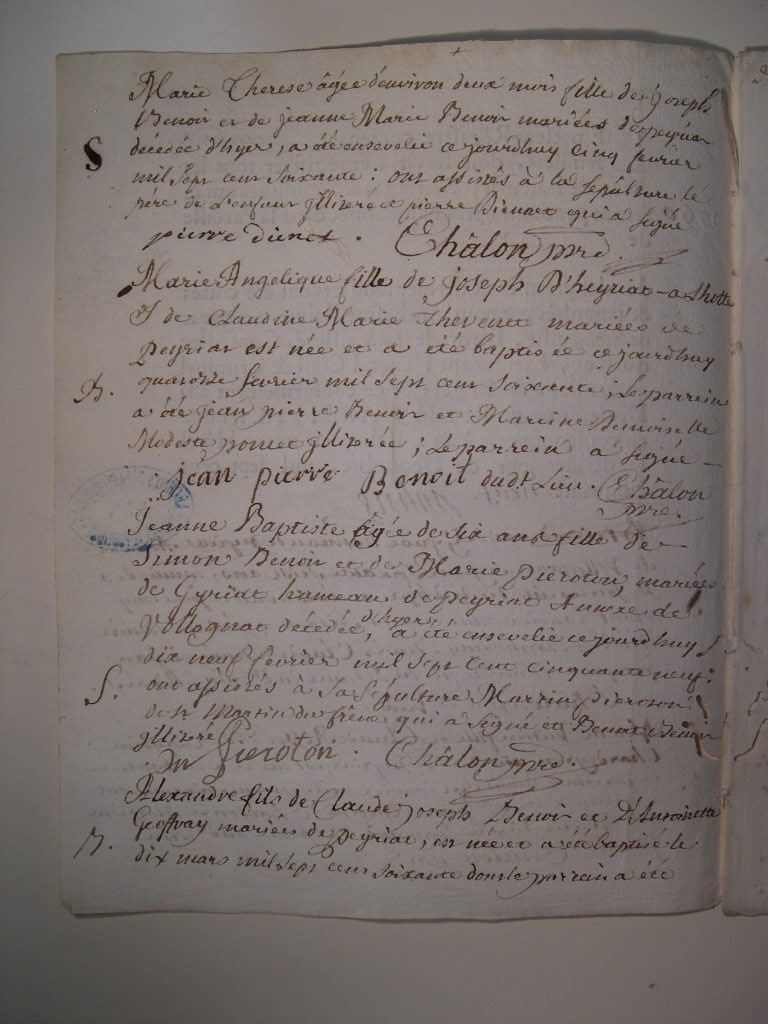 Marie Therese âgée d'environ deux mois fille de joseph
Benoit et de jeanne Marie Benoit mariées de peyriat
S
décédée d'hyer, a été ensevelie ce jourdhuy cinq fevrier
mil sept cent soixante ; ont assistés à la sepulture le
pére de L'enfant jlliteré et pierre Dienet qui a signé
pierre dienet . Châlon pvre.
Marie Angelique fille de joseph D'heyriat
& de Claudine Marie Thevenet mariées de
Peyriat est née et a été baptisée ce jourdhuy
B.
quatorze fevrier mil sept cent soixante ; Le parrein
a été jean pierre Benoit et Marcine Demoiselle
Modeste poncet jlliterée ; Le parrein a signé
jean pierre Benoit dudt Lieu . Châlon
pvre.
Jeanne Baptiste âgée de six ans fille de
Simon Benoit et de Marie pieroton, mariées
de Gyriat hameau de Peyriat Annexe de
Vollognat décedée d'hyer, a été ensevelie ce jourdhuy
dix neuf fevrier mil sept cent cinquante neuf :
S.
ont assistés à sa sépulture Martin pieroton
de St Martin du frêne qui a signé et Benoit Benoit
jlliteré
pieroton . Châlon pvre.
Alexandre fils de Claude joseph Benoit et D'Antoinette
Geoffray mariées de peyriat, est née et a été baptisé le
B.
dix mars mil sept cent soixante dont le parrein a été